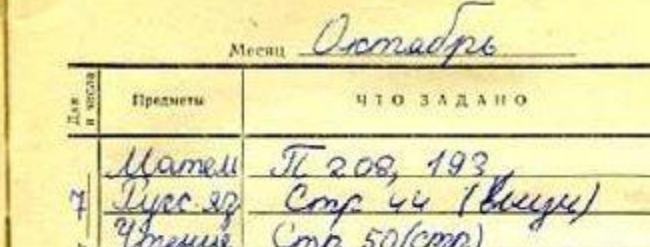 Месяц Октябрь
Дни и числа Предметы ЧТО ЗАДАНО
Матем П 208, 193
7 Русс. яз Стр 44 (
Чтение Стр 50 (стр)